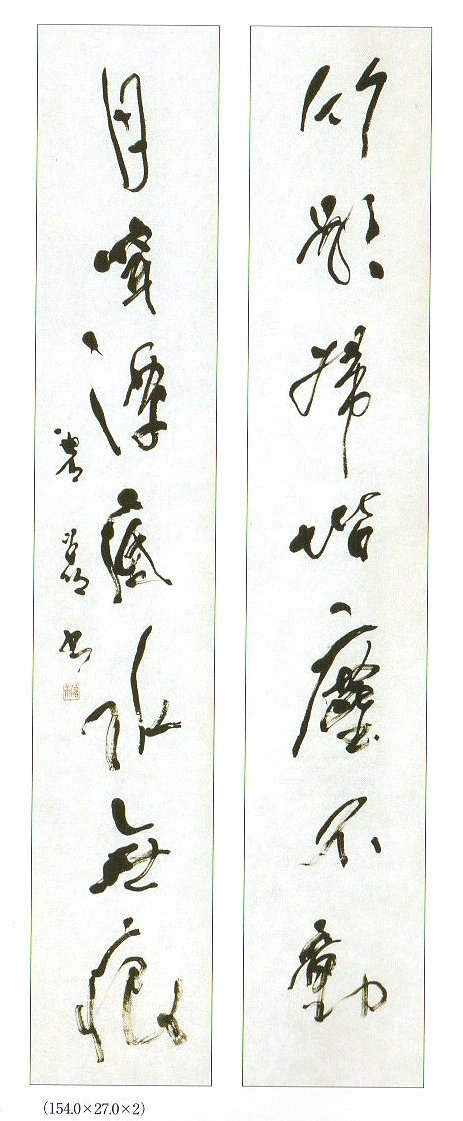 竹影掃堦塵不動
月穿潭底水無痕
(154.0×27.0×2)